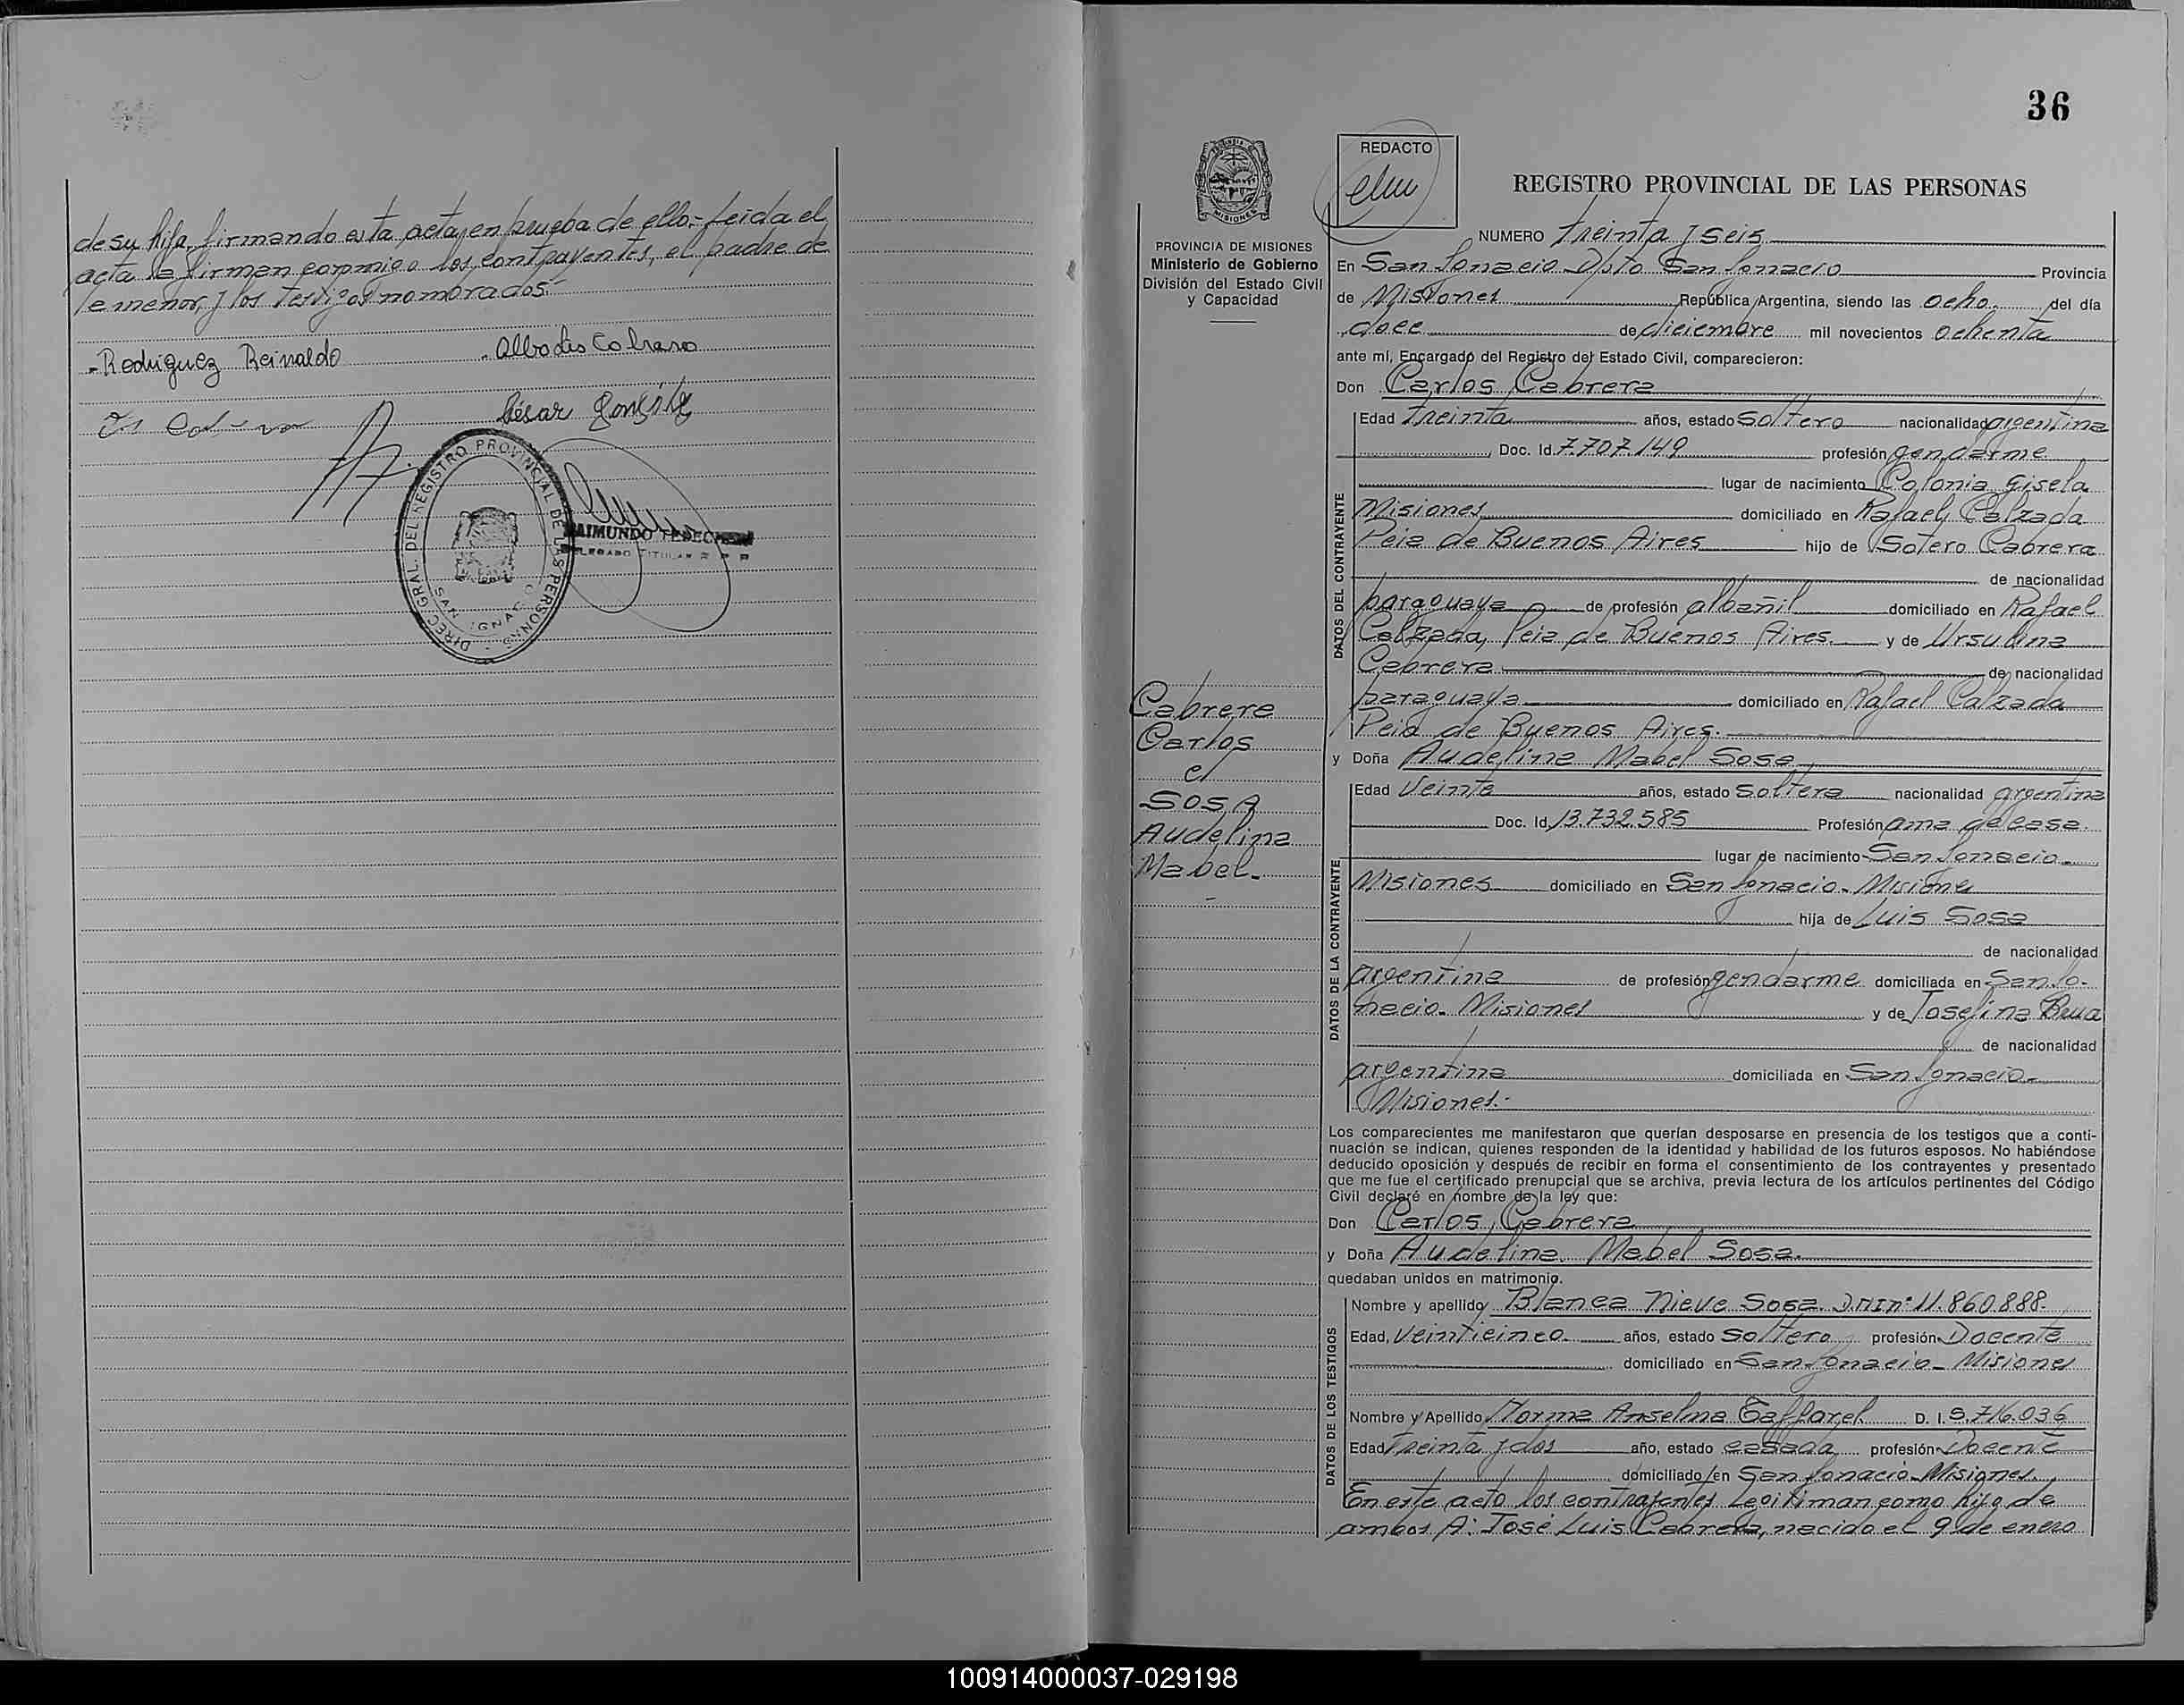 de su hija, firmando esta acta, en prueba de ello.- Leida el
acta la firman conmigo los contrayentes, el padre de
le menor, y los testigos nombrados.-
- Rodriguez Reinaldo
César
DIREC. GRAL. DEL REGISTRO PROVINCIAL DE LAS PERSONAS
SAN IGNACIO
RAIMUNDO
DELEGADO TITULAR R P P
36
REDACTO
PROVINCIA DE MISIONES
Ministerio de Gobierno
División del Estado Civil
y Capacidad
Cabrera
Carlos
c/
SOSA
Audelina
Mabel.-
REGISTRO PROVINCIAL DE LAS PERSONAS
NUMERO Treinta y seis
En San Ignacio Dpto San Ignacio Provincia
de Misiones República Argentina, siendo las ocho del día
doce de diciembre mil novecientos ochenta
ante mí, Encargado del Registro del Estado Civil, comparecieron:
Don Carlos Cabrera
DATOS DEL CONTRAYENTE
Edad treinta años, estado soltero nacionalidad argentina
Doc. Id. 7.707.149 profesión gendarme
lugar de nacimiento Colonia Gisela
Misiones domiciliado en Rafael Calzada
Pcia de Buenos Aires hijo de Sotero Cabrera
de nacionalidad
paraguaya de profesión albañil domiciliado en Rafael
Calzada, Pcia de Buenos Aires. y de Ursulina
Cabrera de nacionalidad
paraguaya domiciliado en Rafael Calzada
Pcia de Buenos Aires.
y Doña Audelina Mabel Sosa
DATOS DE LA CONTRAYENTE
Edad Veinte años, estado soltera nacionalidad argentina
Doc. Id. 13.732.585 Profesión ama de casa.
lugar de nacimiento San Ignacio
Misiones domiciliado en San Ignacio - Misiones
hija de Luis Sosa
de nacionalidad
argentina de profesión gendarme domiciliada en San Ig-
nacio. Misiones y de Joselina
de nacionalidad
argentina domiciliada en San Ignacio
Misiones.-
Los comparecientes me manifestaron que querían desposarse en presencia de los testigos que a conti-
nuación se indican, quienes responden de la identidad y habilidad de los futuros esposos. No habiéndose
deducido oposición y después de recibir en forma el consentimiento de los contrayentes y presentado
que me fue el certificado prenupcial que se archiva, previa lectura de los artículos pertinentes del Código
Civil declaré en nombre de la ley que:
Don Carlos Cabrera
y Doña Audelina Mabel Sosa.
quedaban unidos en matrimonio.
DATOS DE LOS TESTIGOS
Nombre y apellido Blanca Nieve Sosa. D.N.I n° 11.860.888.
Edad, Veinticinco años, estado soltera profesión Docente
domiciliado en San Ignacio - Misiones
Nombre y Apellido Norma Anselma Gaffarel D. I. 5.716.036
Edad Treinta y dos año, estado casada profesión Docente
domiciliado en San Ignacio - Misiones.
En este acto los contrayentes legitiman como hijo de
ambos A: José Luis Cabrera, nacido el 9 de enero
100914000037-029198